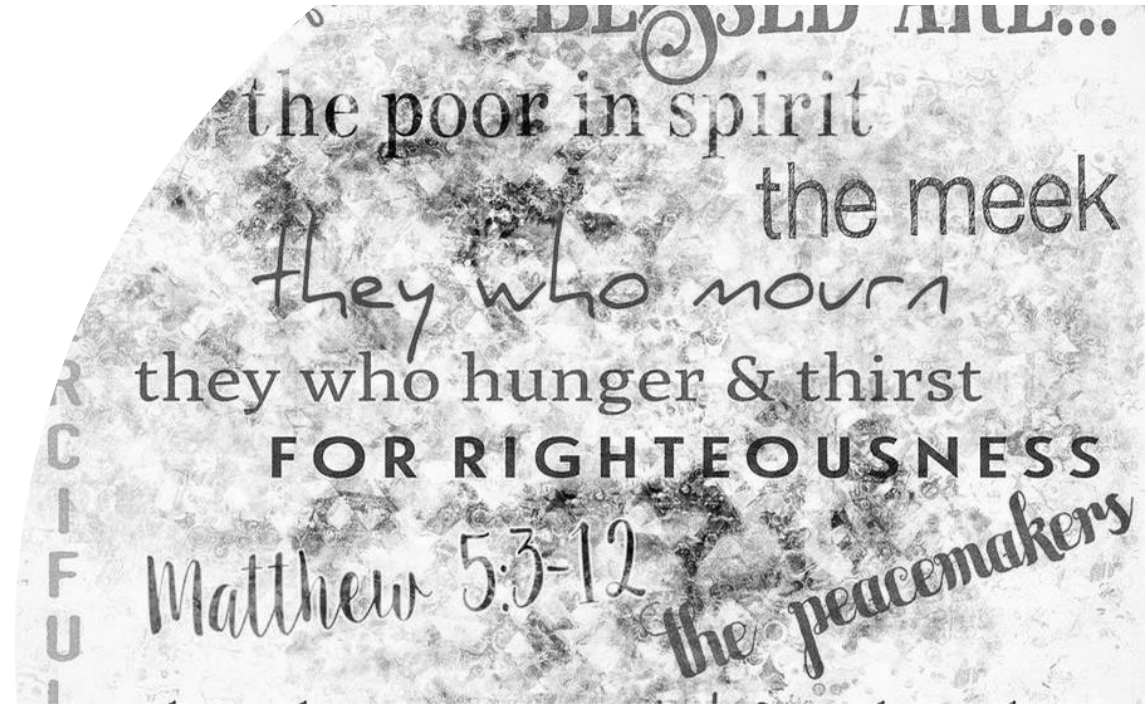 BLESSED ARE...
the poor in spirit
the meek
they who mourn
they who hunger & thirst
FOR RIGHTEOUSNESS
Matthew 5:3-12
the peacemakers
RCIFUL